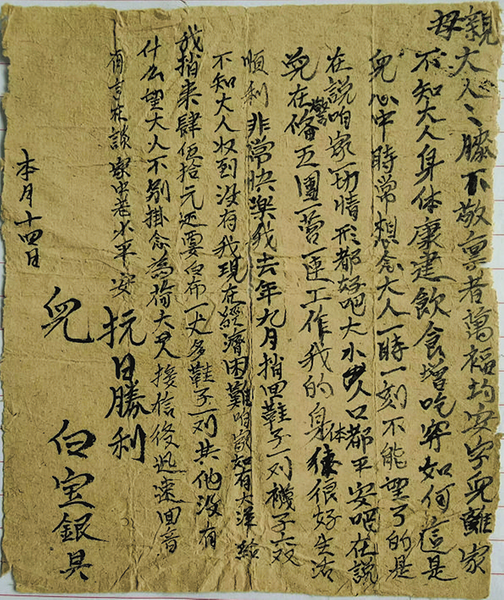 親
母大人之膝下敬稟者萬福均安字兒離家
不知大人身体康建飲食增吃寄如何這是
兒心中時常想念大人一時一刻不能望了的是
在説咱家一切情形都好吧大小人口都平安吧在説
兒在警備五團一营一連工作我的身体很好生活
順利非常快樂我去年九月捎回鞋子一对襪子一双
不知大人收到没有我現在經濟困難咱家知有大洋給
我捎来肆伍拾元还要白布一丈多鞋子一对其他没有
什么望大人不别掛念為荷大人接信後迅速回音
有言在談家中老小平安
抗日勝利
兒 白宝銀具
本月十四日